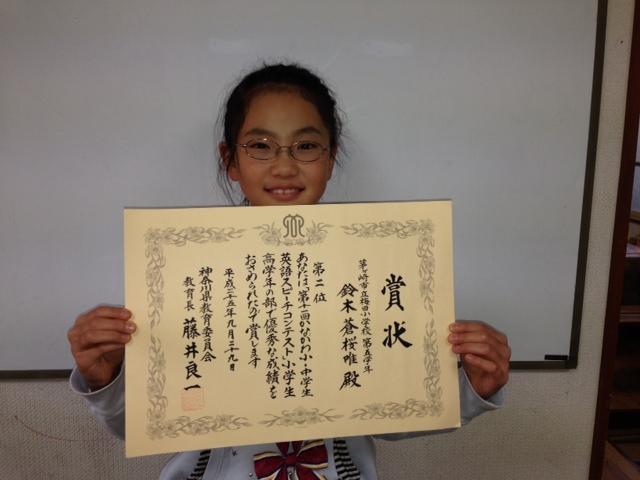 賞状
茅ヶ崎市立梅田小学校 第五学年
鈴木蒼桜唯殿
第二位
あなたは、第十一回かながわ小・中学生
英語スピーチコンテスト小学生
高学年の部で優秀な成績を
おさめられたので賞します
平成二十五年九月二十九日
神奈川県教育委員会
教育長 藤井良一